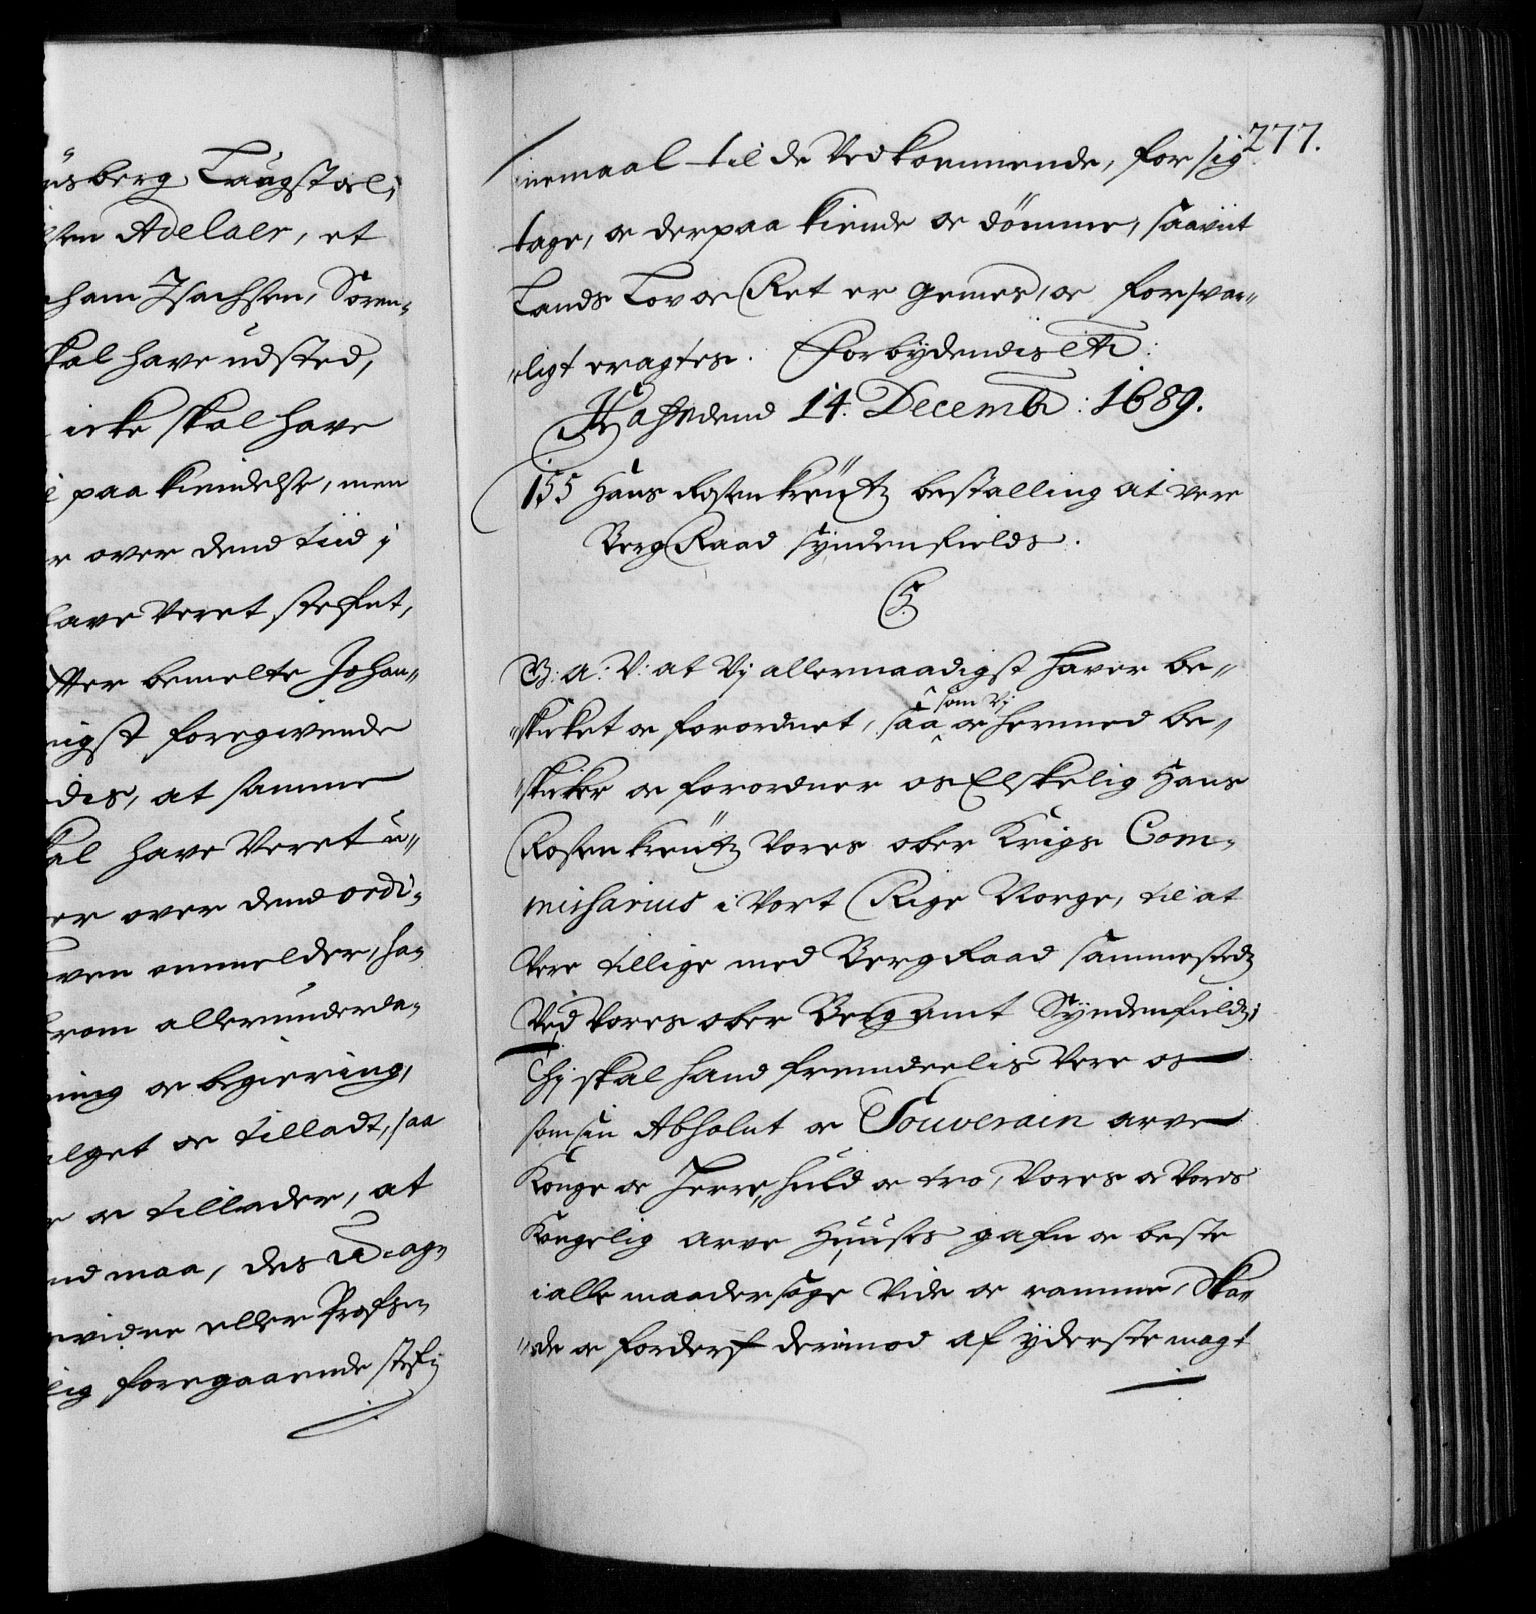 üsberg Laugstoel;
sten Adelaer, et
ham Isachsen, Soren-
skal have udsted,
icke skal have
paa kiendelse, men
r over dend tiid j
have veret stefnt,
efter bemelte Johan-
nigst foregivende
dis, at samme
skal have veret u-
er over dend ordi-
oven anmelder, ha-
from allerunderda-
ning oc begiering,
vilget oc tilladt, saa
r oc tillader, at
nd maa, des
vidne eller
lig foregaaende
277.
inemaal til de vedkommende, for sig
tage, oc derpaa kiende oc dömme, saaviit
Lands Lov oc Ret er gemes, oc forsvar-
ligt eragtes. Forbydendis etc:
Hafn dend 14. Decemb: 1689.
155 Hans Rosenkreütz bestalling at vere
BergRaad syndenfields.
C5.
G: A: V: at Vj allernaadigst haver be-
skicket oc forordnet, saa som Vj oc hermed be-
skicker oc forordner os Elskelig Hans
Rosenkreütz Vores ober Krigs Com-
missarius i Vort Rige Norge, til at
Vere tillige med BergRaad sammesteds
Ved Vores ober Bergamt Syndenfields;
Thj skal hand fremdeelis Vere os
som sin Absolut oc Souverain arve
Konge oc Herre, huld oc tro, Vores oc Vores
Kongelig arve Huuses gafn oc beste
i alle maader söge vide oc ramme, Ska-
de oc forderf derimod af yderste magt